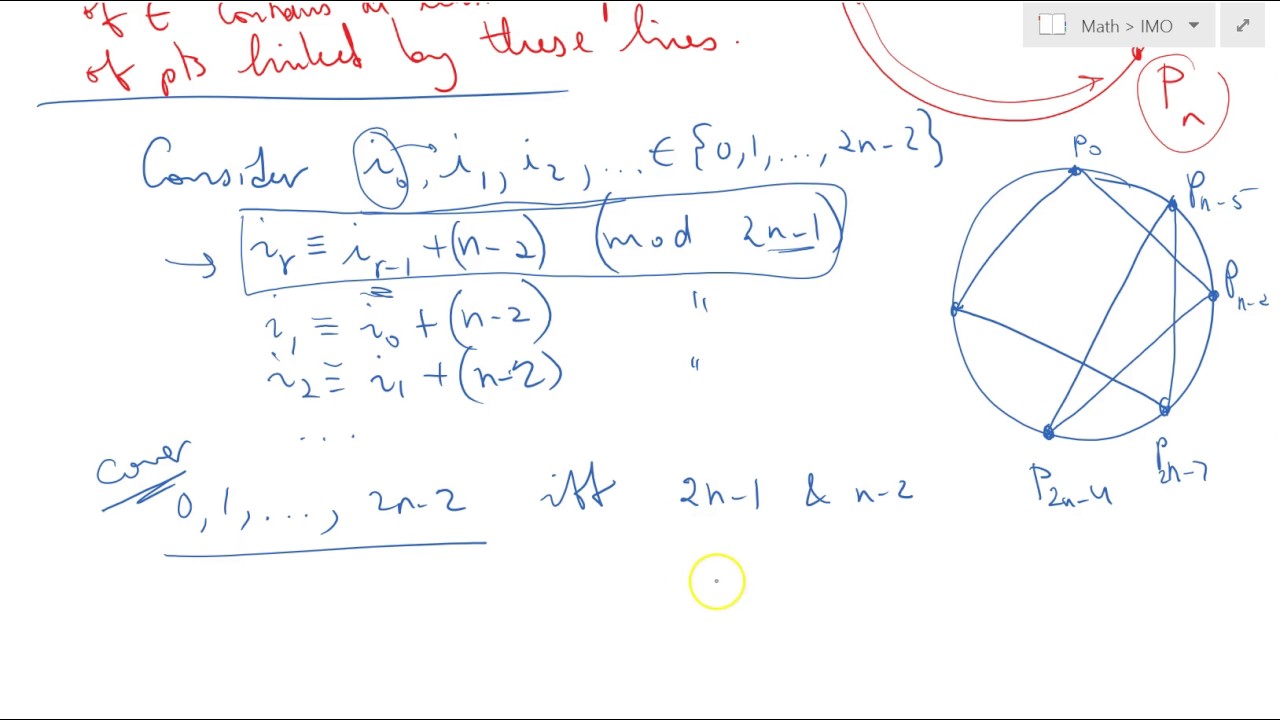 of E contains at
of pts linked by these lines.
Math > IMO
P_n
Consider i_0, i_1, i_2, ... ∈ {0, 1, ..., 2n-2}
→ i_r ≡ i_{r-1} + (n-2) (mod 2n-1)
i_1 ≡ i_0 + (n-2) "
i_2 ≡ i_1 + (n-2) "
...
Cover
0, 1, ..., 2n-2 iff 2n-1 & n-2
P_0
P_{n-5}
P_{n-2}
P_{2n-7}
P_{2n-4}